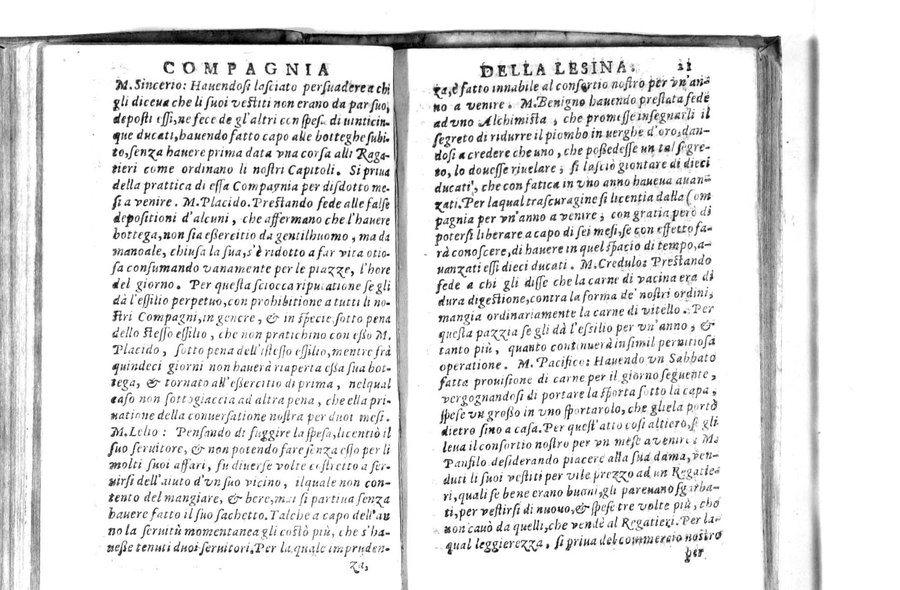 COMPAGNIA
M. Sincerio: Hauendosi lasciato persuadere a chi
gli diceua che li suoi vestiti non erano da par suo,
deposti essi, ne fece de gl'altri con spesa di uinticin-
que ducati, hauendo fatto capo alle botteghe subi-
to, senza hauere prima data vna corsa alli Rega-
tieri come ordinano li nostri Capitoli. Si priua
della prattica di essa Compagnia per disdotto me-
si a venire. M. Placido. Prestando fede alle false
depositioni d'alcuni, che affermano che l'hauere
bottega, non sia essercitio da gentilhuomo, ma da
manoale, chiusa la sua, s'è ridotto a far vita otio-
sa consumando vanamente per le piazze, l'hore
del giorno. Per questa sciocca riputatione se gli
dà l'essilio perpetuo, con prohibitione a tutti li no-
stri Compagni, in genere, & in specie sotto pena
dello stesso essilio, che non pratichino con esso M.
Placido, sotto pena dell'istesso essilio, mentre frà
quindeci giorni non hauerà riaperta essa sua bot-
tega, & tornato all'essercitio di prima, nel qual
caso non sottogiaccia ad altra pena, che ella pri-
uatione della conuersatione nostra per duoi mesi.
M. Lelio: Pensando di fuggire la spesa, licentiò il
suo seruitore, & non potendo fare senza esso per li
molti suoi affari, fu diuerse volte costretto a ser-
uirsi dell'aiuto d'vn suo vicino, ilquale non con-
tento del mangiare, & bere, mai si partiua senza
hauere fatto il suo sachetto. Talche a capo dell'an
no la seruitù momentanea gli costò più, che s'ha-
uesse tenuti duoi seruitori. Per la quale impruden-
za,
DELLA LESINA. 21
za, è fatto innabile al consortio nostro per vn'an-
no a venire. M. Benigno hauendo prestata fede
ad vno Alchimista, che promesse insegnarli il
segreto di ridurre il piombo in verghe d'oro, dan-
dosi a credere che uno, che possedesse un tal segre-
to, lo douesse riuelare; si lasciò giontare di dieci
ducati, che con fatica in vno anno haueua auan-
zati. Per laqual trascuragine si licentia dalla Com
pagnia per vn'anno a venire; con gratia però di
potersi liberare a capo di sei mesi, se con effetto fa-
rà conoscere, di hauere in quel spacio di tempo, a-
uanzati essi dieci ducati. M. Credulo: Prestando
fede a chi gli disse che la carne di vacina era di
dura digestione, contra la forma de' nostri ordini,
mangia ordinariamente la carne di vitello. Per
questa pazzia se gli dà l'essilio per vn'anno, &
tanto più, quanto continuerà in simil perniciosa
operatione. M. Pacifico: Hauendo vn Sabbato
fatta prouisione di carne per il giorno seguente,
vergognandosi di portare la sporta sotto la capa,
spese vn grosso in vno sportarolo, che gliela portò
dietro sino a casa. Per quest'atto così altiero, se gli
leua il consortio nostro per vn mese a venire: M.
Panfilo desiderando piacere alla sua dama, ven-
duti li suoi vestiti per vile prezzo ad un Regatie-
ri, quali se bene erano buoni, gli pareuano sgarba-
ti, per vestirsi di nuouo, & spese tre volte più, che
non cauò da quelli, che vendè al Regatieri. Per la-
qual leggierezza, si priua del commercio nostro
per